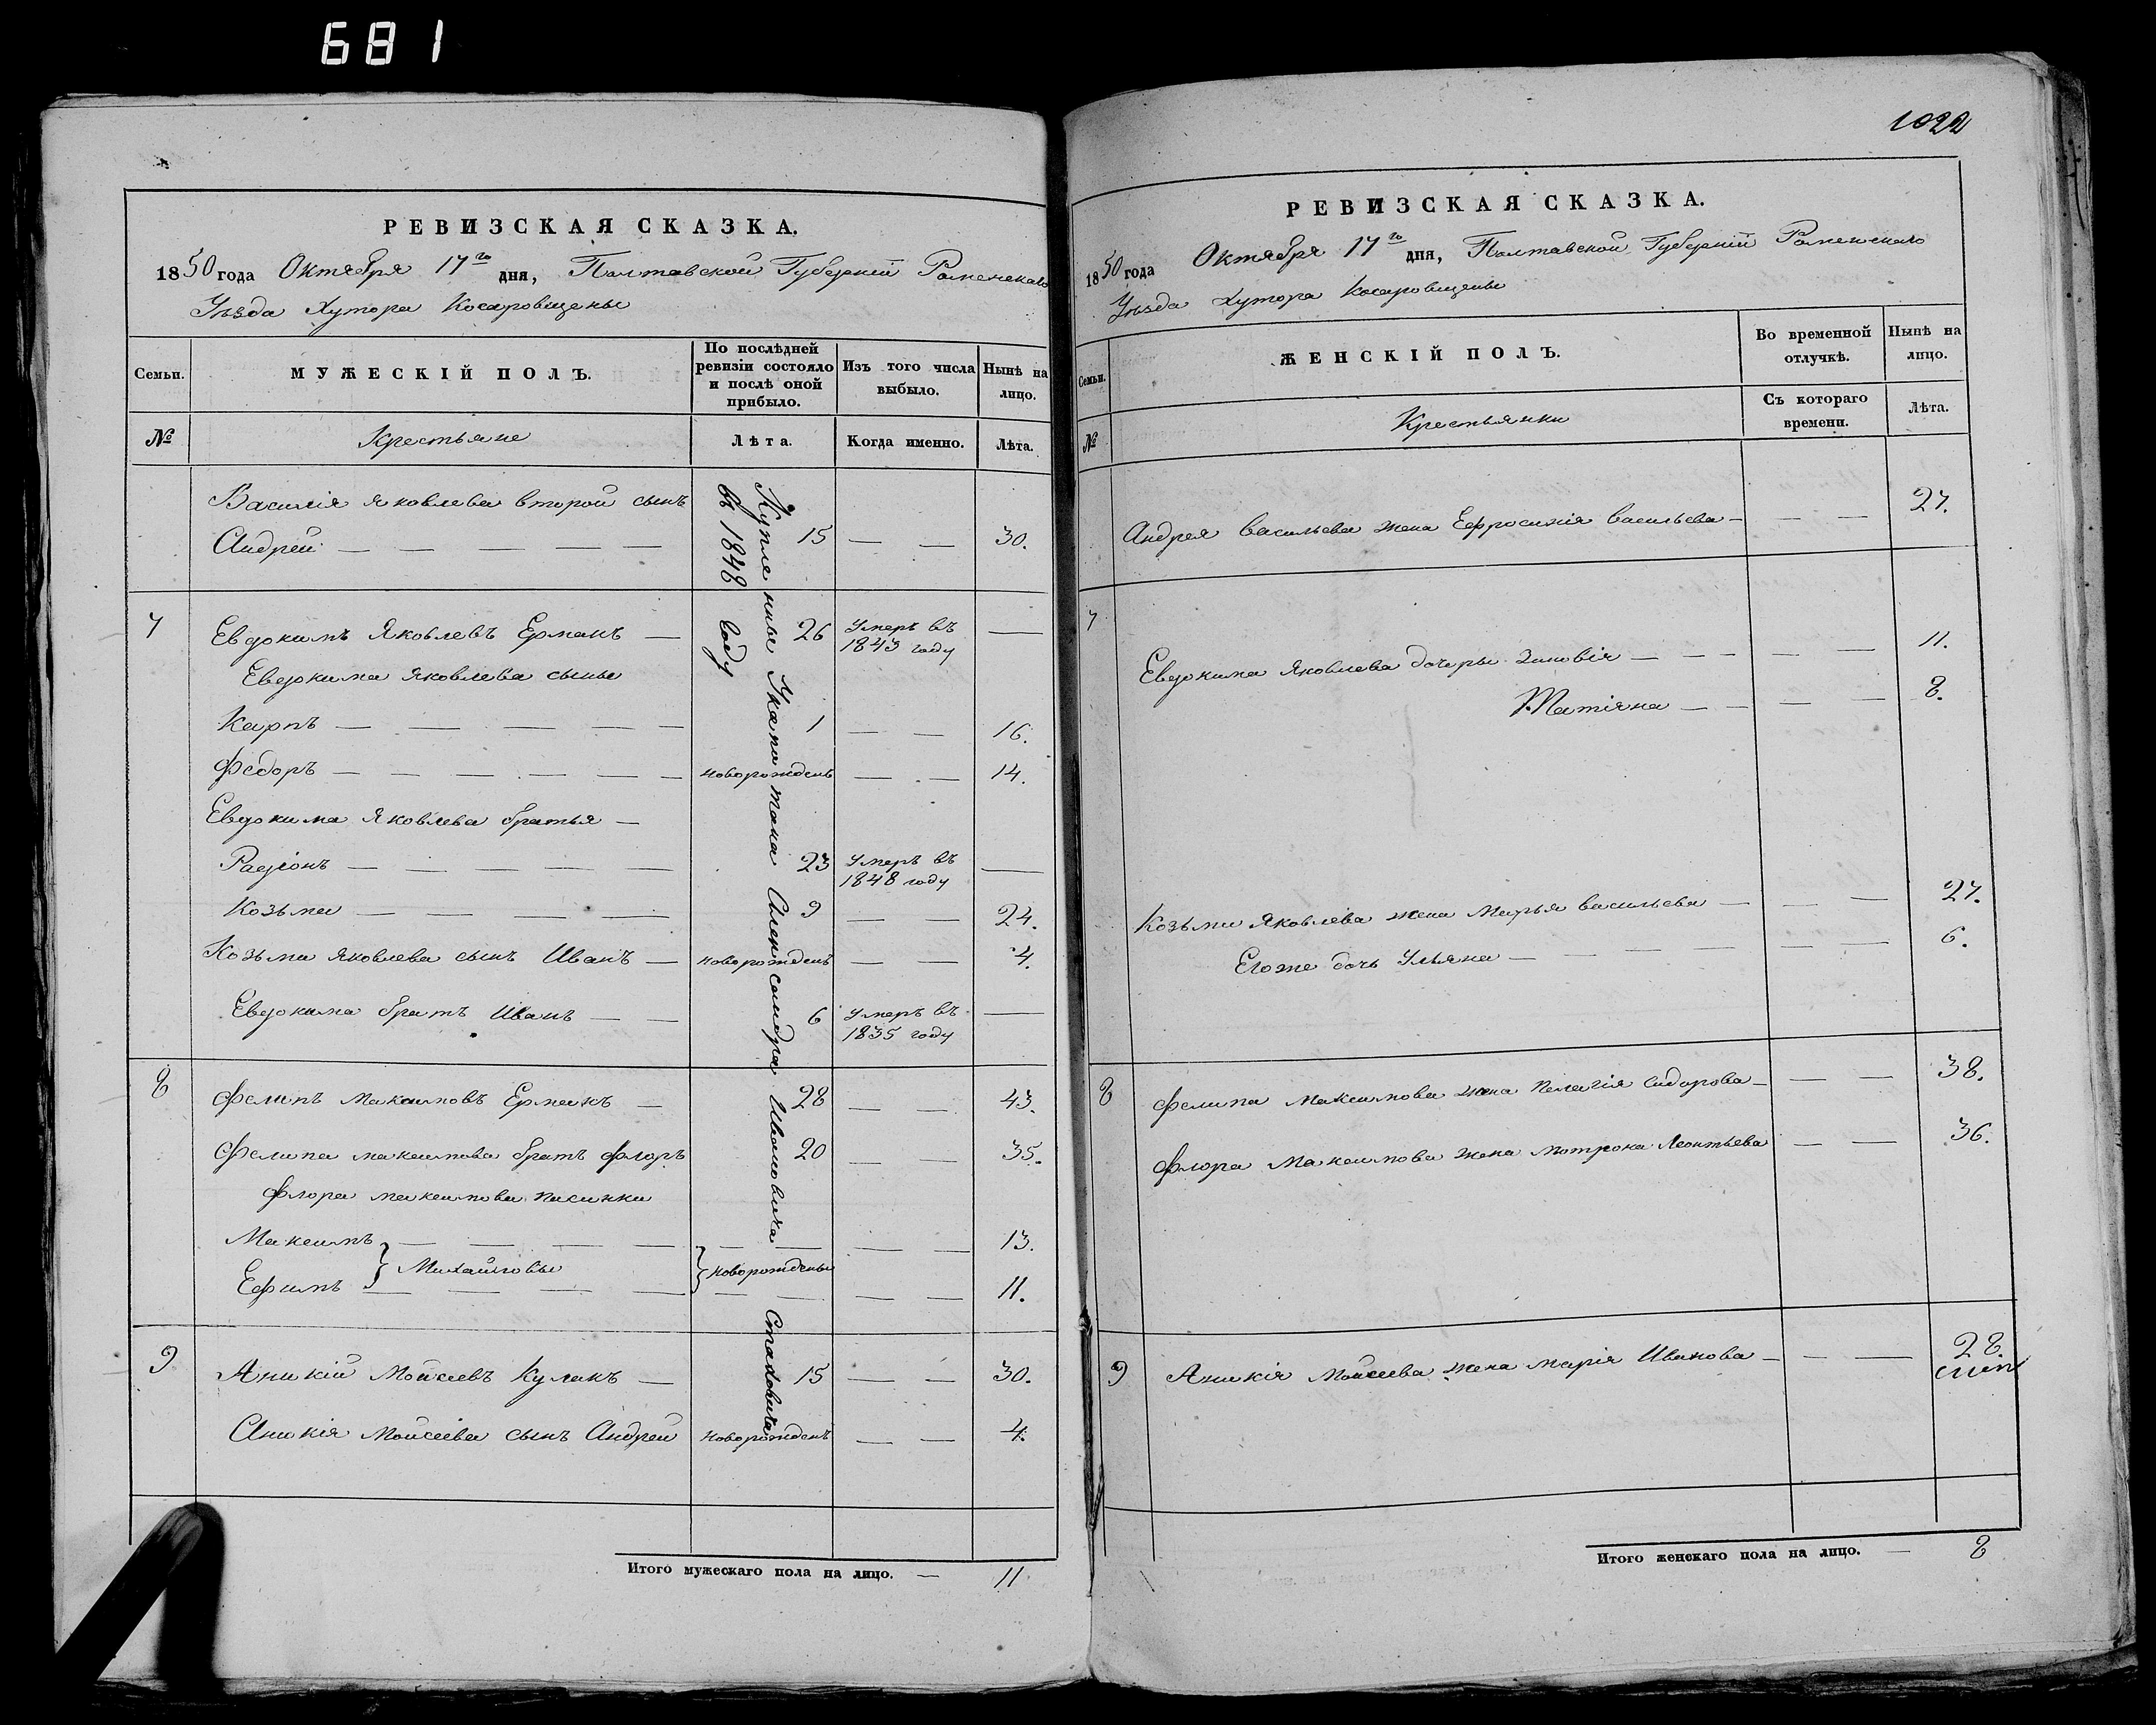 681
РЕВИЗСКАЯ СКАЗКА.
1850 года Октября 17го дня, Полтавской Губерніи Роменскаго
Уѣзда Хутора Косаровщены
Семьи.
МУЖЕСКІЙ ПОЛЪ.
По послѣдней ревизіи состояло и послѣ оной прибыло.
Изъ того числа выбыло.
Нынѣ на лицо.
№
Крестьяне
Лѣта.
Когда именно.
Лѣта.
Купленные Укапитана Александра Ивановича Стаховича
въ 1848 году
Василія Яковлева второй сынъ
Андрей — 15 — — 30.
7 Евдокимъ Яковлевъ Ермакъ — 26 Умеръ въ 1843 году —
Евдокима Яковлева сыны
Карпъ — 1 — — 16.
Федоръ — новорожденъ — — 14.
Евдокима Яковлева братья —
Радіонъ — 23 Умеръ въ 1848 году —
Козьма — 9 — — 24.
Козьми Яковлева сынъ Иванъ — новорожденъ — — 4.
Евдокима братъ Иванъ — — 6 Умеръ въ 1835 году —
8 Филипъ Максимовъ Ермакъ — 28 — — 43.
Филипа Максимова братъ Флоръ 20 — — 35.
Флора Максимова пасинки
Максимъ — — — 13.
} Михайловы } новорожденны
Ефимъ — — — 11.
9 Аникій Мойсеевъ Кулакъ — 15 — — 30.
Аникія Мойсеева сынъ Андрей новорожденъ — — 4.
Итого мужескаго пола на лицо. — 11
1022
РЕВИЗСКАЯ СКАЗКА.
1850 года Октября 17го дня, Полтавской Губерніи Роменскаго
Уѣзда Хутора Косаровщены
Семьи.
ЖЕНСКІЙ ПОЛЪ.
Во временной отлучкѣ.
Нынѣ на лицо.
№
Крестьянки
Съ котораго времени.
Лѣта.
Андрея Васильева жена Ефросинія Васильева — — — 27.
7
Евдокима Яковлева дочеры Зиновія — — — 11.
Татіяна — — — 8.
Козьми Яковлева жена Марья Васильева — — — 27.
Егоже дочь Ульяна — — — 6.
8 Филипа Максимова жена Пелагія Сидорова — — — 38.
Флора Максимова жена Мотрона Леонтьева — — 36.
9 Аникія Мойсеева жена Марія Иванова — — — 28.
Итого женскаго пола на лицо. — 8